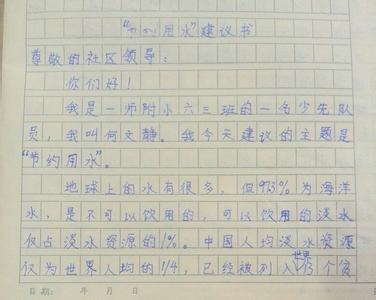 “节约用水”建议书
尊敬的社区领导:
你们好!
我是一师附小六三班的一名少先队
员,我叫何文静。我今天建议的主题是
“节约用水”。
地球上的水有很多,但97.3%为海洋
水,是不可以饮用的,可以饮用的淡水
仅占淡水资源的1%。中国人均淡水资源
仅为世界人均的1/4,已经被列入世界13个贫
日期: 年 月 日